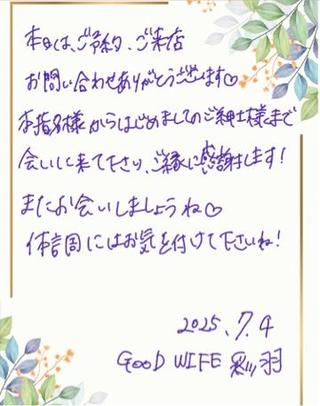 本日は、ご予約、ご来店
お問い合わせありがとうございます♡
本指名様からはじめましてのご紳士様まで
会いに来て下さり、ご縁に感謝します!
またお会いしましょうね♡
体調にはお気を付けて下さいね!
2025.7.4
GOOD WIFE 羽